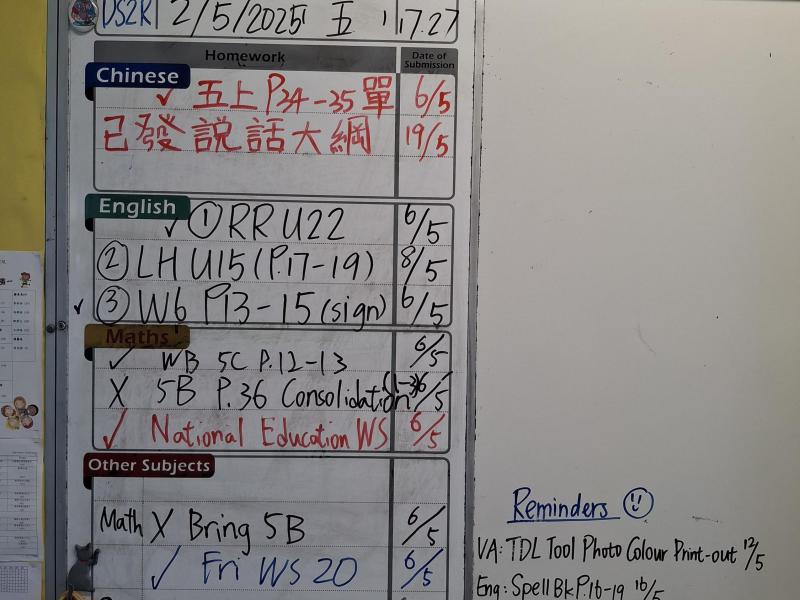 DS2R1 2/5/2025 五 17.27
Homework Date of Submission
Chinese
✓ 五上 P34-35 單 6/5
已發 説話大綱 19/5
English
✓ ① RR U22 6/5
② LH U15 (P.17-19) 8/5
✓ ③ W6 P13-15 (sign) 6/5
Maths
✓ WB 5C P.12-13 6/5
X 5B P.36 Consolidation (1-3) 6/5
✓ National Education WS 6/5
Other Subjects
Math X Bring 5B 6/5
✓ Fri WS 20 6/5
Reminders
VA: TDL Tool Photo Colour Print-out 12/5
Eng: Spell Bk P.16-19 16/5